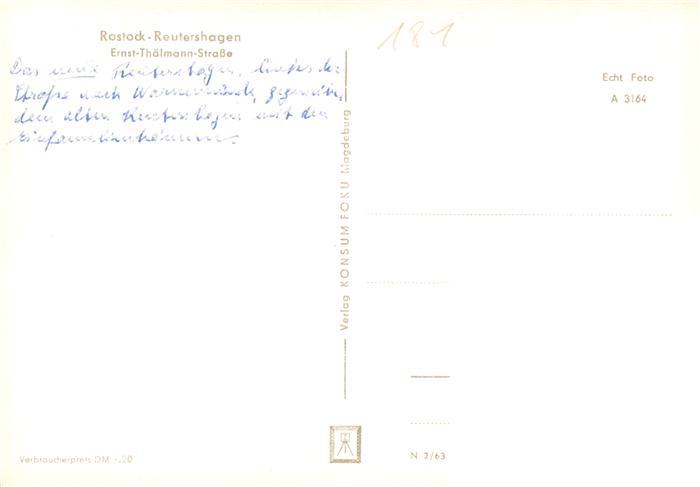 Rostock-Reutershagen
Ernst-Thälmann-Straße
Das neue Reutershagen, links der
Straße nach Warnemünde, gegenüber
dem alten Reutershagen mit den
Einfamilienhäusern.
181
Echt Foto
A 3164
Verlag KONSUM FOKU Magdeburg
Verbraucherpreis DM -.20
N 2/63